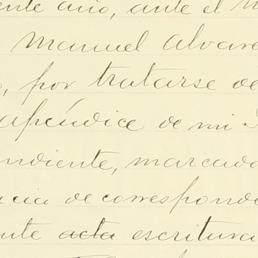 ente año, ante el
Manuel Alvare
, por tratarse de
apéndice de mi
ndiente, marcado
cia de correspondi
nte acta escritura